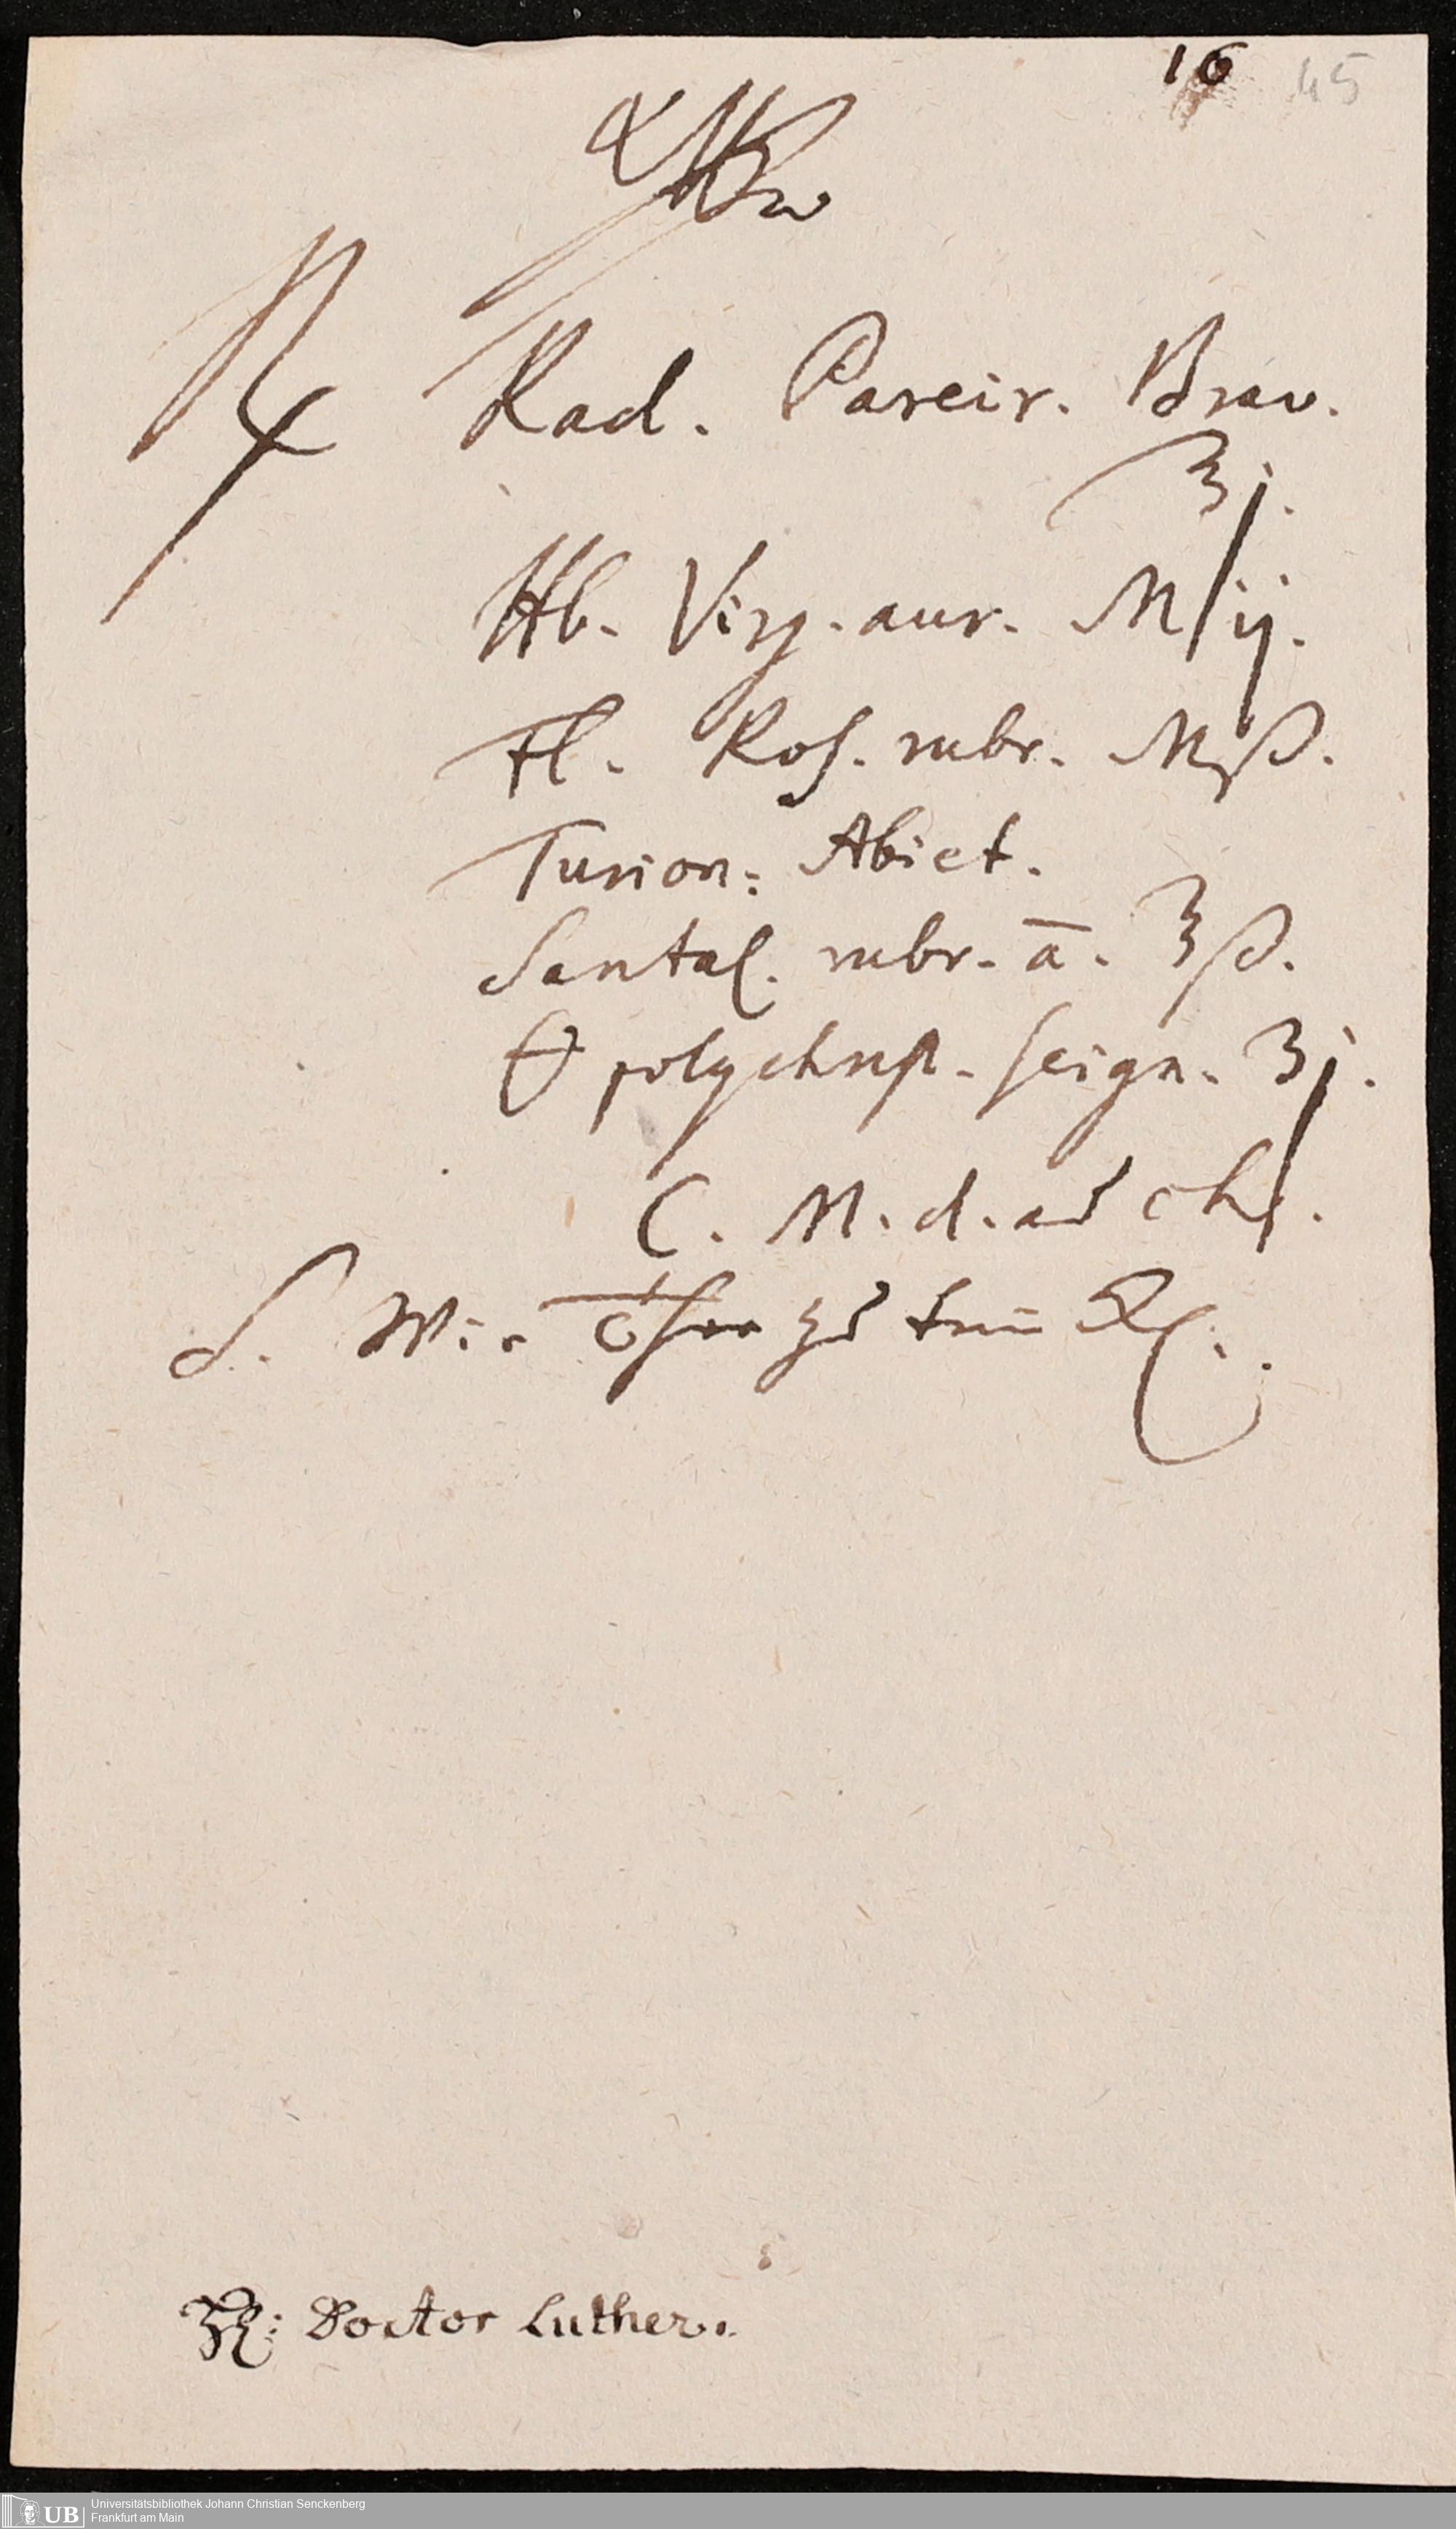 16 45
℞ Rad. Pareir. Brav.
ʒj.
Hb. Virg. aur. Mij.
Fl. Ros. rubr. Mß.
Turion: Abiet.
Santal. rubr. ā. ʒß.
polychrest. seign. ʒj.
C. M. d. ad ch.
S. Wie zu
H: Doctor Luther.
UB Universitätsbibliothek Johann Christian Senckenberg
Frankfurt am Main